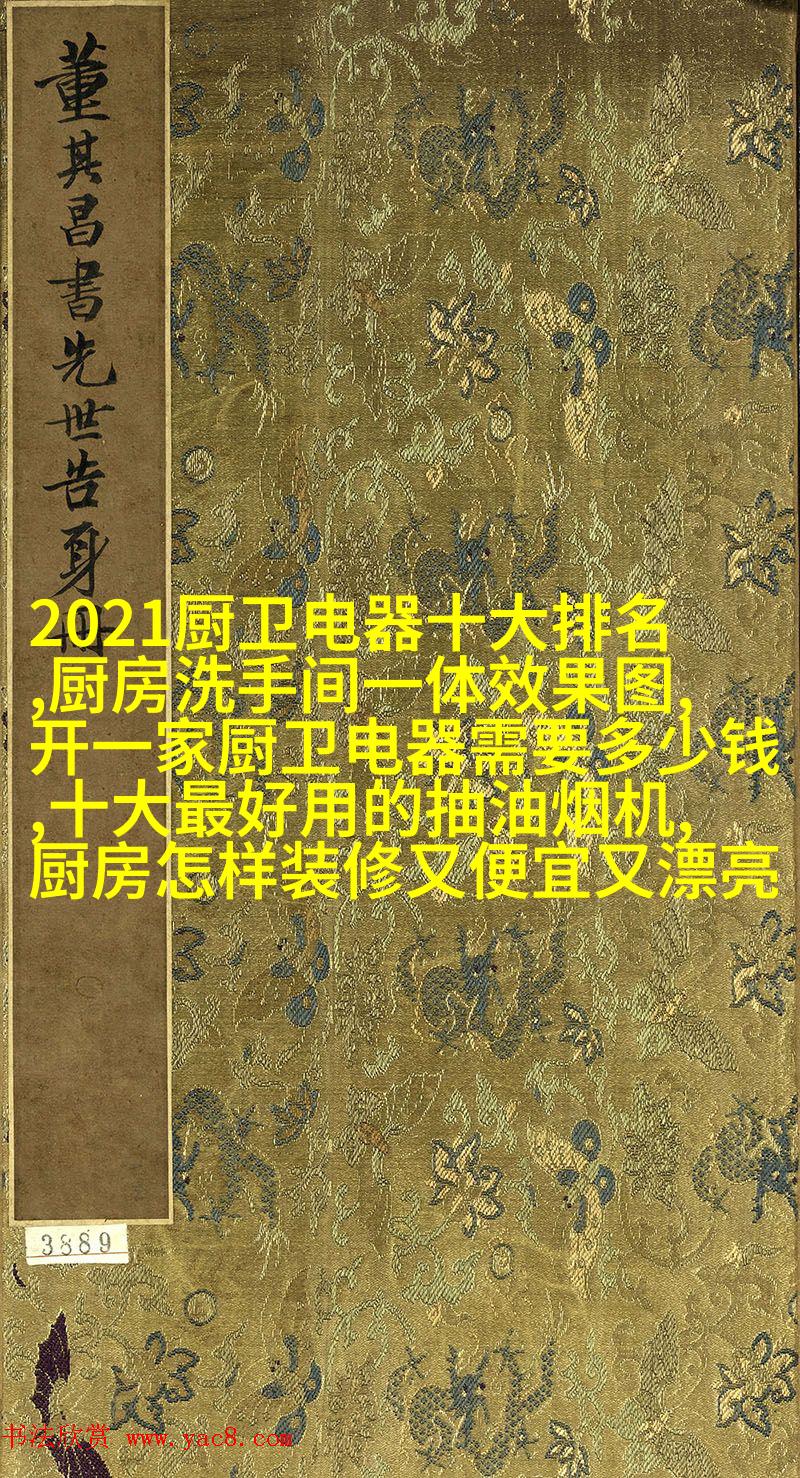 董其昌書先世告身冊
2021厨卫电器十大排名
,厨房洗手间一体效果图,
开一家厨卫电器需要多少钱
,十大最好用的抽油烟机,
厨房怎样装修又便宜又漂亮
3889
书法欣赏 www.yac8.com